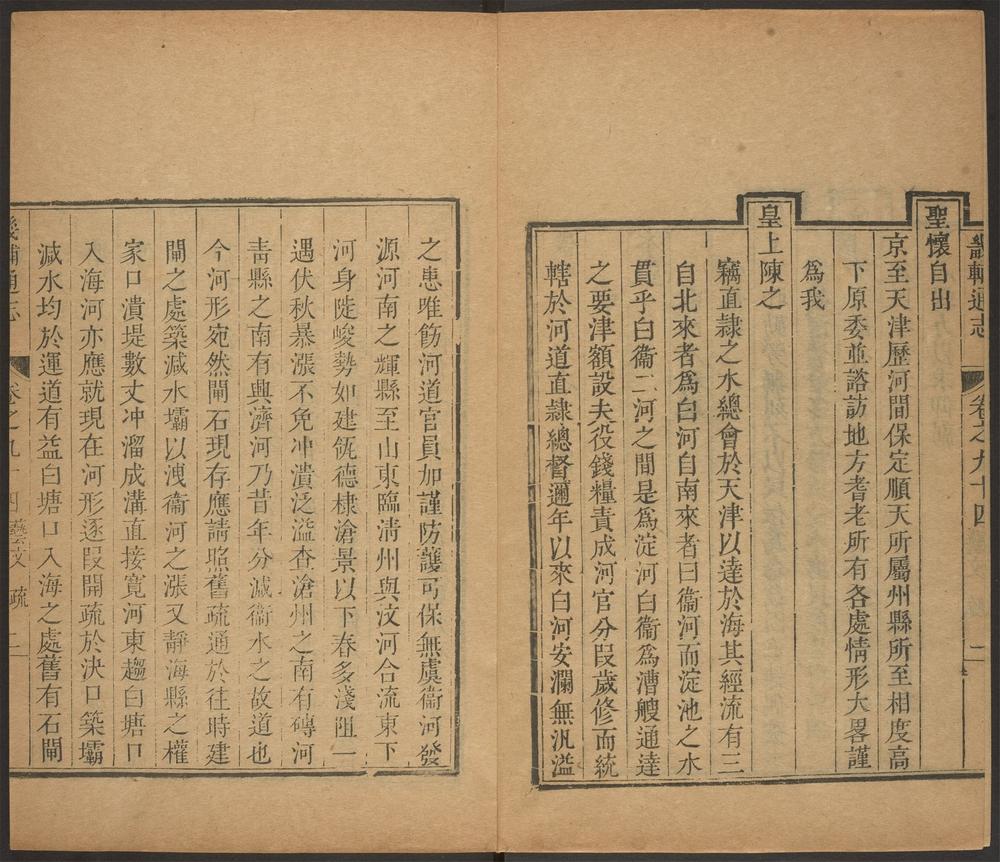 畿輔通志
卷之九十四
二
聖懷自出
京至天津歷河間保定順天所屬州縣所至相度高
下原委並諮訪地方耆老所有各處情形大畧謹
為我
皇上陳之
竊直隷之水總會於天津以達於海其經流有三
自北來者爲白河自南來者曰衞河而淀池之水
貫乎白衞二河之間是爲淀河白衞爲漕艘通達
之要津額設夫役錢糧責成河官分段歲修而統
轄於河道直隷總督邇年以來白河安瀾無汎溢
之患唯飭河道官員加謹防護可保無虞衞河發
源河南之輝縣至山東臨淸州與汶河合流東下
河身陡峻勢如建瓴德棣滄景以下春多淺阻一
遇伏秋暴漲不免冲潰泛溢查滄州之南有磚河
靑縣之南有興濟河乃昔年分減衞水之故道也
今河形宛然閘石現存應請照舊疏通於往時建
閘之處築減水壩以洩衞河之漲又靜海縣之權
家口潰堤數丈冲溜成溝直接寬河東趨白塘口
入海河亦應就現在河形逐段開疏於決口築壩
減水均於運道有益白塘口入海之處舊有石閘
畿輔通志
卷之九十四
藝文
疏
二